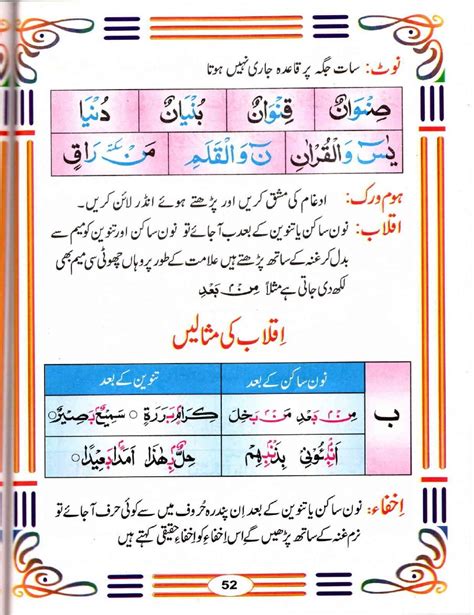 نوٹ: سات جگہ پر قاعدہ جاری نہیں ہوتا
صِنْوَانٌ قِنْوَانٌ بُنْيَانٌ دُنْيَا
يٰسٓ وَالْقُرْاٰنِ نٓ وَالْقَلَمِ مَنْ سكتہ رَاقٍ
ہوم ورک: ادغام کی مشق کریں اور پڑھتے ہوئے انڈر لائن کریں۔
اقلاب: نون ساکن یا تنوین کے بعد ب آجائے تو نون ساکن اور تنوین کو میم سے
بدل کر غنہ کے ساتھ پڑھیں گے علامت کے طور پر وہاں چھوٹی سی میم بھی
لکھ دی جاتی ہے مثلاً مِنْۢ بَعْدِ
اِقلاب کی مثالیں
نون ساکن کے بعد تنوین کے بعد
ب مِنْۢ بَعْدِ مَنْۢ بَخِلَ كِرَامٍۭ بَرَرَةٍ ○ سَمِيْعٌۢ بَصِيْرٌ ○
اَنْۢبِئُوْنِيْ بِذَنْۢبِهِمْ حِلٌّۢ بِهٰذَا اَمَدًۢا بَعِيْدًا ○
اِخفاء: نون ساکن یا تنوین کے بعد اِن پندرہ حُروف میں سے کوئی حرف آجائے تو
نرم غنہ کے ساتھ پڑھیں گے اِس اِخفاء کو اِخفاءِ حقیقی کہتے ہیں
52